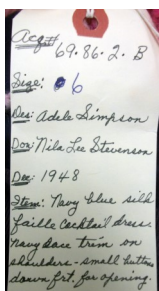 Acq# 69.86.2.B
Size: 6
Des: Adele Simpson
Don: Nila Lee Stevenson
Dec: 1948
Item: Navy blue silk
faille cocktail dress.
Navy lace trim on
shoulders - small buttons
down frt. for opening.